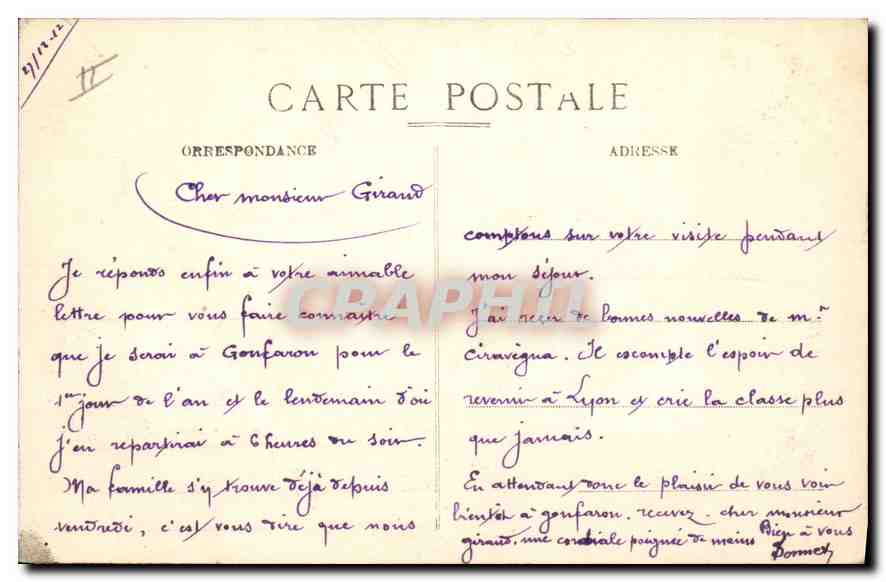 27/12-12
II
CARTE POSTALE
ORRESPONDANCE
Cher monsieur Giraud
Je réponds enfin à votre aimable
lettre pour vous faire connaitre
que je serai à Gonfaron pour le
1er jour de l'an et le lendemain d'où
j'en repartirai à 6 heures du soir.
Ma famille s'y trouve déjà depuis
vendredi, c'est vous dire que nous
ADRESSE
comptons sur votre visite pendant
mon séjour.
J'ai reçu de bonnes nouvelles de Mr
Ciravégna. Il escompte l'espoir de
revenir à Lyon et crie la classe plus
que jamais.
En attendant donc le plaisir de vous voir
bientôt à gonfaron, recevez, cher monsieur
giraud, une cordiale poignée de mains Bien à vous
Donnet
CRAPHI